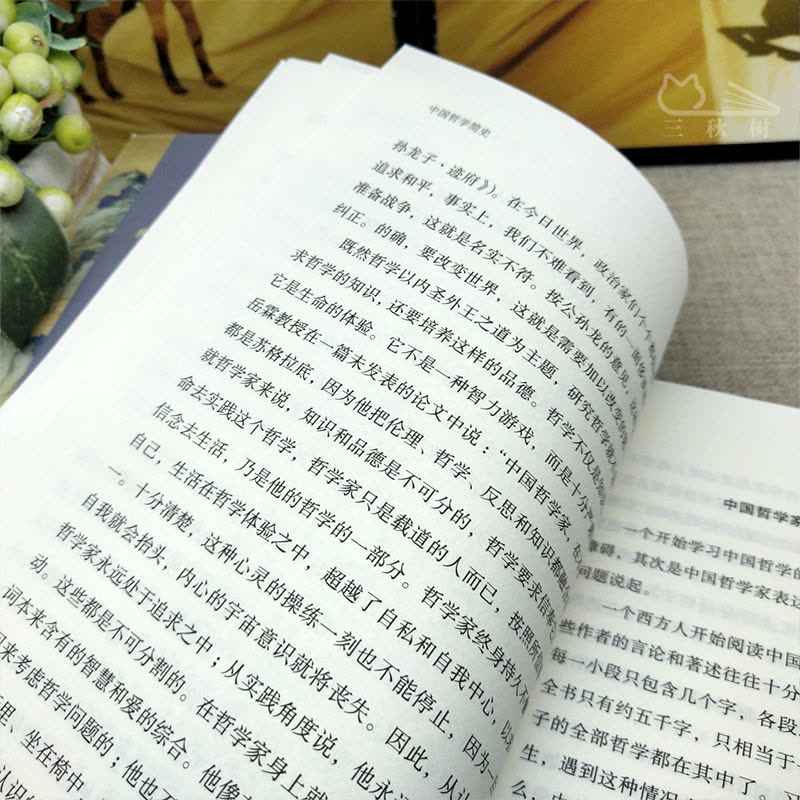 三秋树
中国哲学简史
孙龙子·迹府》）。在今日世界，政治家们个个都
追求和平，事实上，我们不难看到，有的一面侈
准备战争，这就是名实不符。按公孙龙的意见，这
纠正。的确，要改变世界，这就是需要加以改变的
既然哲学以内圣外王之道为主题，研究哲学就
求哲学的知识，还要培养这样的品德。哲学不仅是知
它是生命的体验。它不是一种智力游戏，而是十分严
岳霖教授在一篇未发表的论文中说：“中国哲学家，在
都是苏格拉底，因为他把伦理、哲学、反思和知识都融
就哲学家来说，知识和品德是不可分的，哲学要求信奉
命去实践这个哲学，哲学家只是载道的人而已，按照所
信念去生活，乃是他的哲学的一部分。哲学家终身持久不
自己，生活在哲学体验之中，超越了自私和自我中心，以
一。十分清楚，这种心灵的操练一刻也不能停止，因为一
自我就会抬头，内心的宇宙意识就将丧失。因此，从认
哲学家永远处于追求之中；从实践角度说，他永
动。这些都是不可分割的。在哲学家身上就
词本来含有的智慧和爱的综合。他像
来考虑哲学问题的；他也不
里、坐在椅中
认识
中国哲学家
一个开始学习中国哲学的
障碍，其次是中国哲学家表达
问题说起。
一个西方人开始阅读中国
些作者的言论和著述往往十分
每一小段只包含几个字，各段
全书只有约五千字，只相当于
子的全部哲学都在其中了。习
生，遇到这种情况
么，中